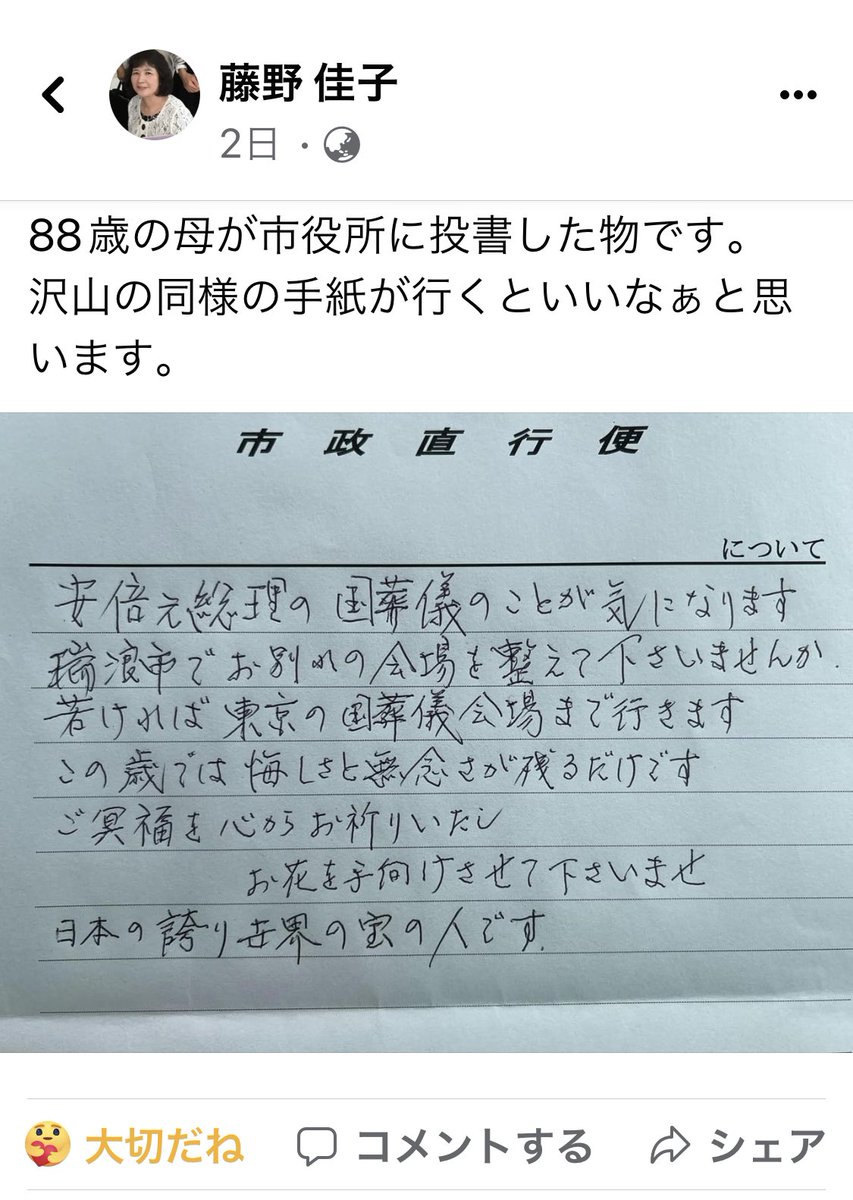 藤野 佳子
2日 ·
88歳の母が市役所に投書した物です。
沢山の同様の手紙が行くといいなぁと思
います。
市政直行便
について
安倍元総理の国葬儀のことが気になります
瑞浪市でお別れの会場を整えて下さいませんか.
若ければ東京の国葬儀会場まで行きます
この歳では悔しさと無念さが残るだけです
ご冥福を心からお祈りいたし
お花を手向けさせて下さいませ
日本の誇り世界の宝の人です.
大切だね
コメントする
シェア